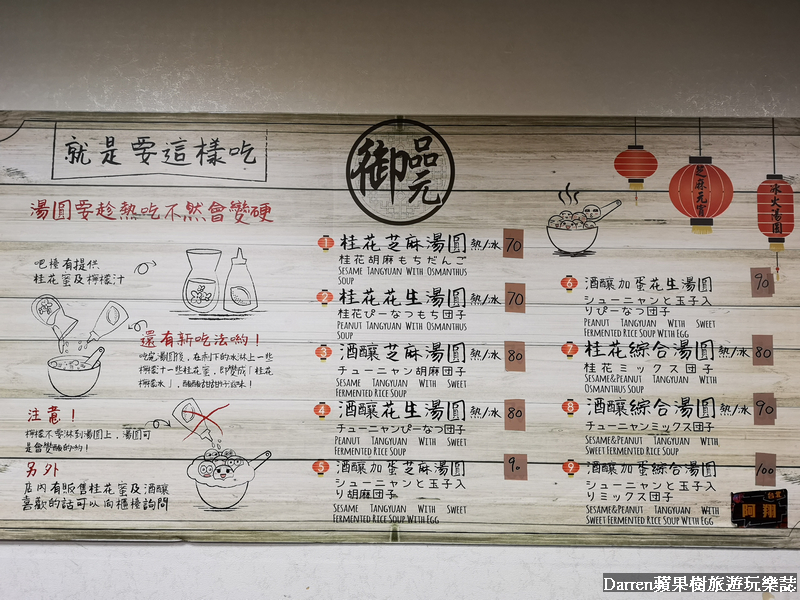 就是要這樣吃
湯圓要趁熱吃不然會變硬
吧檯有提供
桂花蜜及檸檬汁
還有新吃法喲！
吃完湯圓後，在剩下的冰淋上一些
檸檬汁一些桂花蜜，即變成「桂花
檸檬冰」，酸酸甜甜好滋味！
注意！
檸檬不要淋到湯圓上，湯圓可
是會變醜的喲！
另外
店內有販售桂花蜜及酒釀
喜歡的話可以向櫃檯詢問
御品元
1 桂花芝麻湯圓 熱/冰 70
桂花胡麻もちだんご
Sesame Tangyuan With Osmanthus
Soup
2 桂花花生湯圓 熱/冰 70
桂花ぴーなつもち団子
Peanut Tangyuan With Osmanthus
Soup
3 酒釀芝麻湯圓 熱/冰 80
チューニャン胡麻団子
Sesame Tangyuan With Sweet
Fermented Rice Soup
4 酒釀花生湯圓 熱/冰 80
チューニャンぴーなつ団子
Peanut Tangyuan With Sweet
Fermented Rice Soup
5 酒釀加蛋芝麻湯圓 90
シューニャンと玉子入
り胡麻団子
Sesame Tangyuan With Sweet
Fermented Rice Soup With Egg
芝麻元宵
冰火湯圓
6 酒釀加蛋花生湯圓 90
シューニャンと玉子入
りぴーなつ団子
Peanut Tangyuan With Sweet
Fermented Rice Soup With Egg
7 桂花綜合湯圓 熱/冰 80
桂花ミックス団子
Sesame&Peanut Tangyuan With
Osmanthus Soup
8 酒釀綜合湯圓 熱/冰 90
チューニャンミックス団子
Sesame&Peanut Tangyuan With
Sweet Fermented Rice Soup
9 酒釀加蛋綜合湯圓 100
シューニャンと玉子入
りミックス団子
Sesame&Peanut Tangyuan With
Sweet Fermented Rice Soup With Egg
阿翔
Darren蘋果樹旅遊玩樂誌